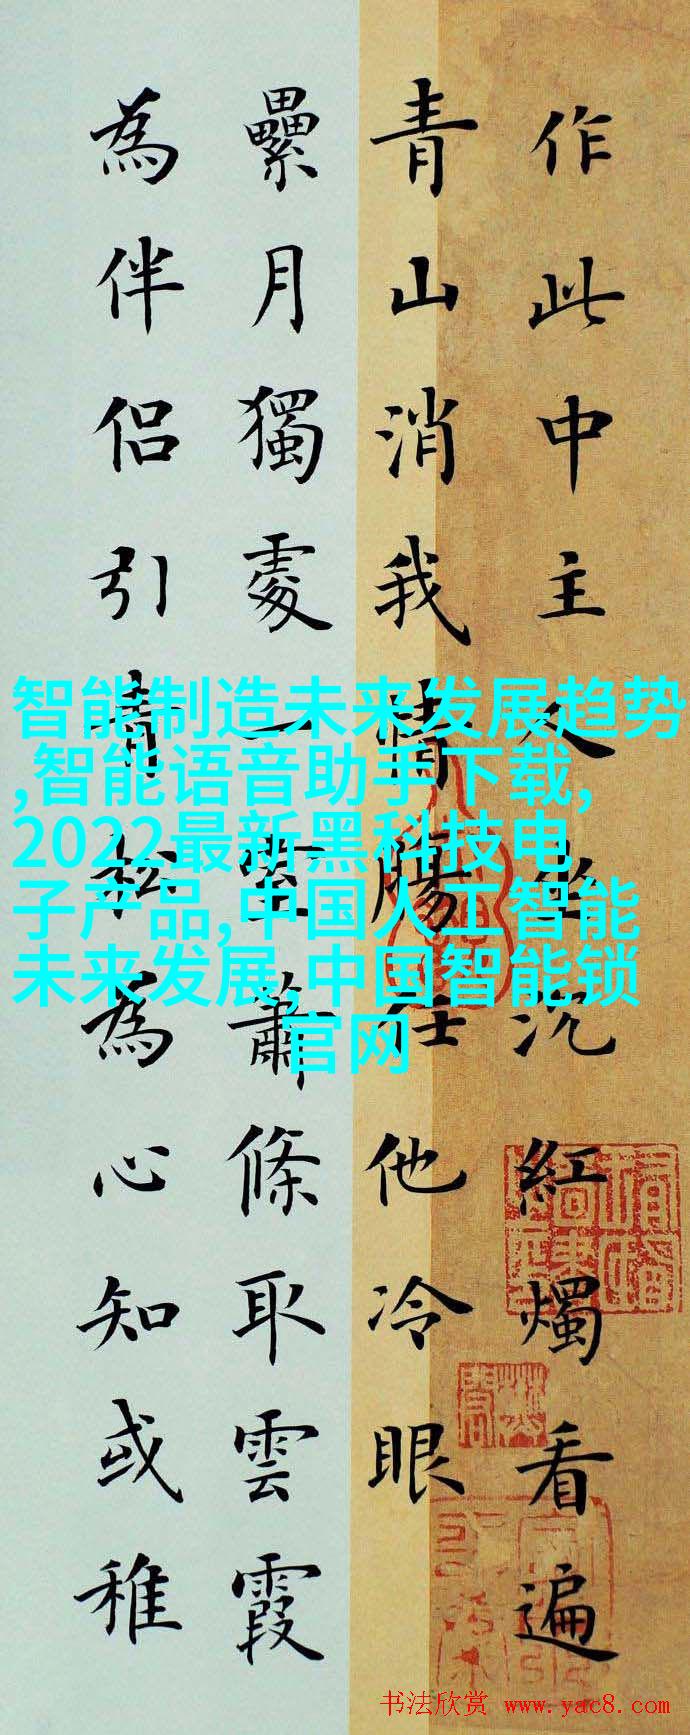 作此中主人坐沉紅燭看遍
青山消我情腸任他冷眼
纍月獨處一室蕭條取雲霞
為伴侶引青松為心知或稚
智能制造未来发展趋势
,智能语音助手下载,
2022最新黑科技电
子产品,中国人工智能
未来发展,中国智能锁
官网
书法欣赏 www.yac8.com